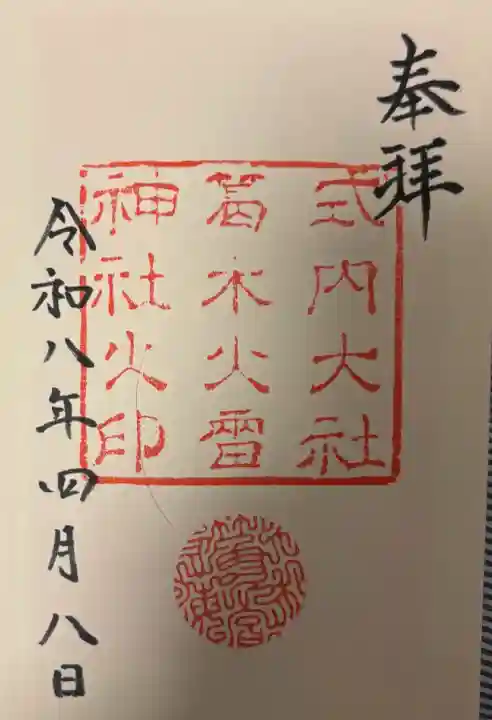 奉拝
式内大社
葛木火雷
神社之印
令和八年四月八日